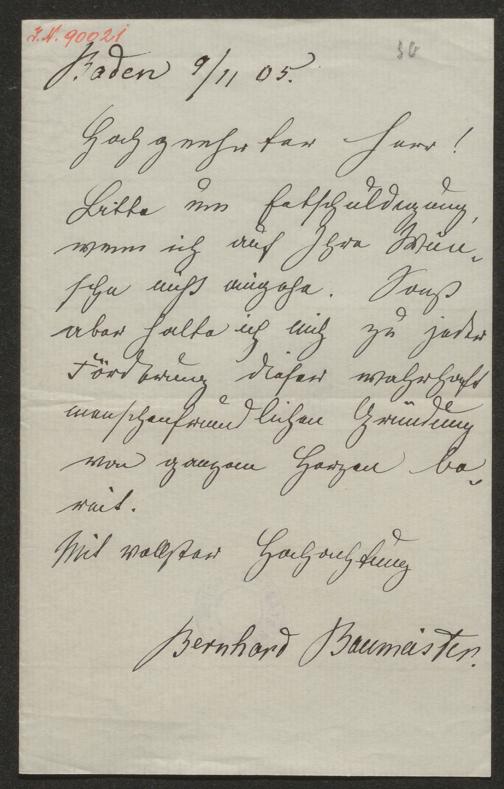 J.N. 90021
36
Baden 9/11 05.
Hochgeehrter Herr!
Bitte um Entschuldigung,
wenn ich auf Ihre Wün-
sche nicht eingehe. Sonst
aber halte ich mich zu jeder
Förderung dieser wahrhaft
menschenfreundlichen Gründung
von ganzem Herzen be-
reit.
Mit vollster Hochachtung
Bernhard Baumeister.